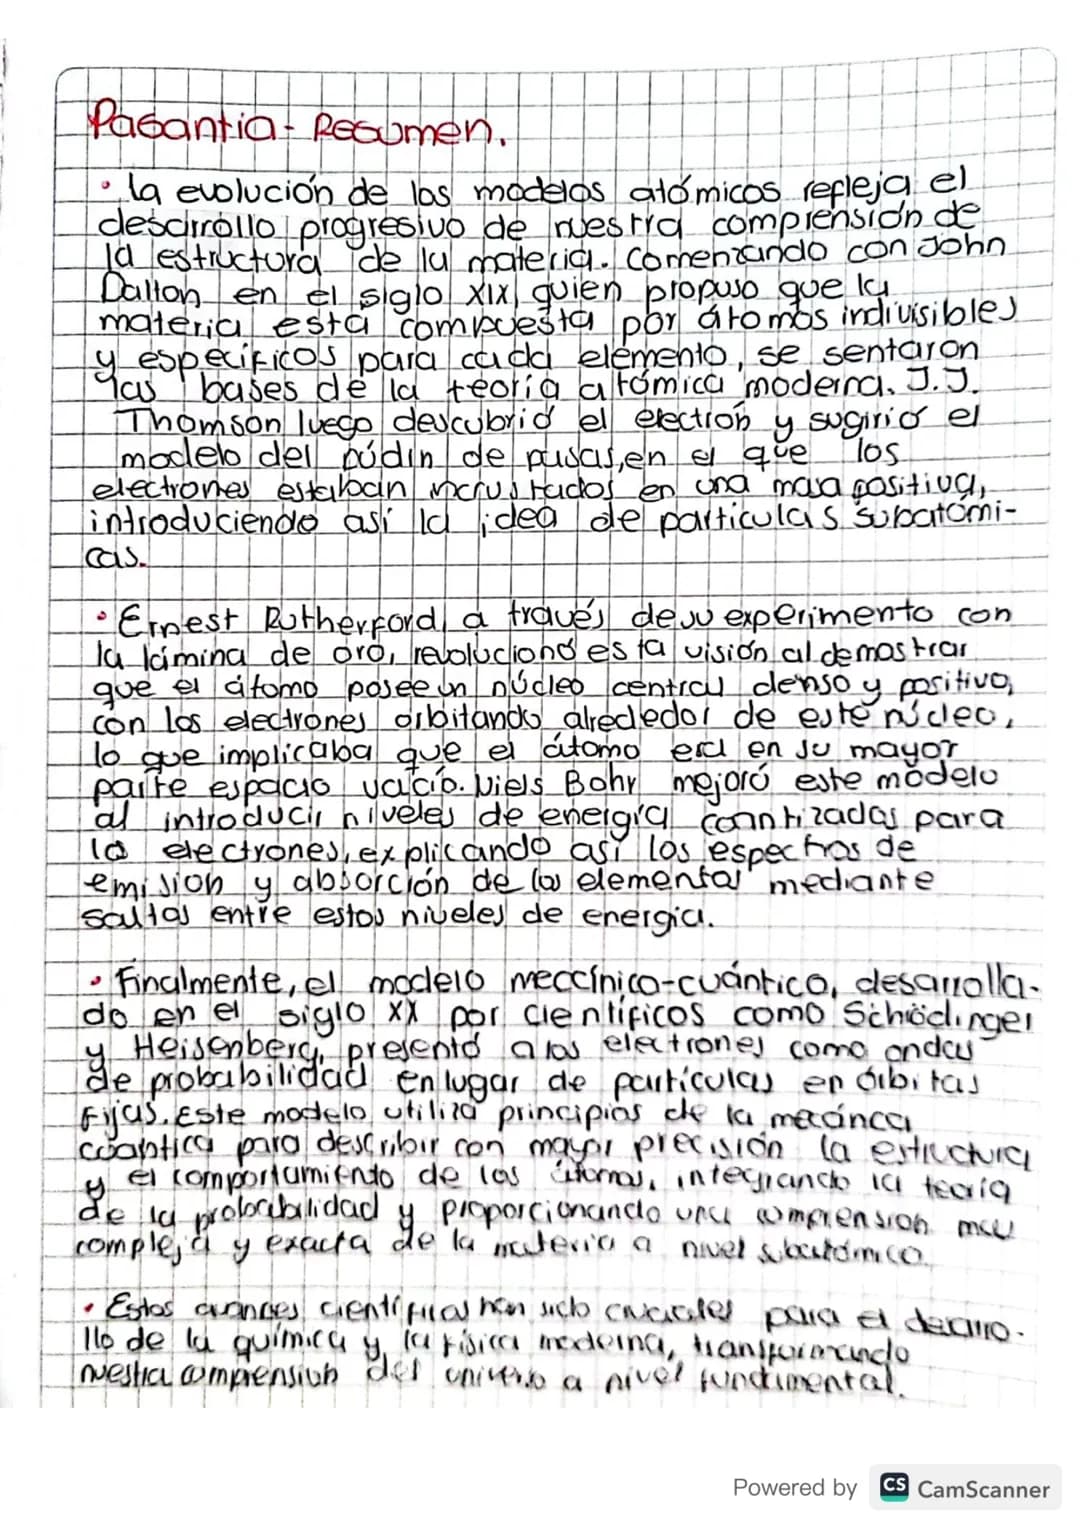 Pasantia - Resumen.
• la evolución de los modelos atómicos refleja el
desarrollo progresivo de nuestra comprensión de
la estructura de la materia. Comenzando con John
Dalton en el siglo XIX, quien propuso que la
materia está compuesta por átomos indivisibles
y específicos para cada elemento, se sentaron
las bases de la teoría atómica moderna. J.J.
Thomson luego descubrió el electrón y sugirió el
modelo del púdin de pasas, en el que los
electrones estaban incrustados en una masa positiva,
introduciendo así la idea de partículas subatómi-
cas.
• Ernest Rutherford, a través de su experimento con
la lámina de oro, revolucionó esta visión al demostrar
que el átomo posee un núcleo central denso y positivo,
con los electrones orbitando alrededor de este núcleo,
lo que implicaba que el átomo era en su mayor
parte espacio vacío. Niels Bohr mejoró este modelo
al introducir niveles de energía cuantizadas para
los electrones, explicando así los espectros de
emisión y absorción de los elementos mediante
saltos entre estos niveles de energía.
• Finalmente, el modelo mecánico-cuántico, desarrolla-
do en el siglo XX por científicos como Schrödinger
y Heisenberg, presentó a los electrones como ondas
de probabilidad en lugar de partículas en órbitas
fijas. Este modelo utiliza principios de la mecánca
cuántica para describir con mayor precisión la estructura
y el comportamiento de los átomos, integrando la teoría
de la probabilidad y proporcionando una comprensión mas
compleja y exacta de la materia a nivel subatómico.
• Estos avances científicos han sido cruciales para el desarro-
llo de la química y la física moderna, transformando
nuestra comprensión del universo a nivel fundamental.
Powered by CS CamScanner